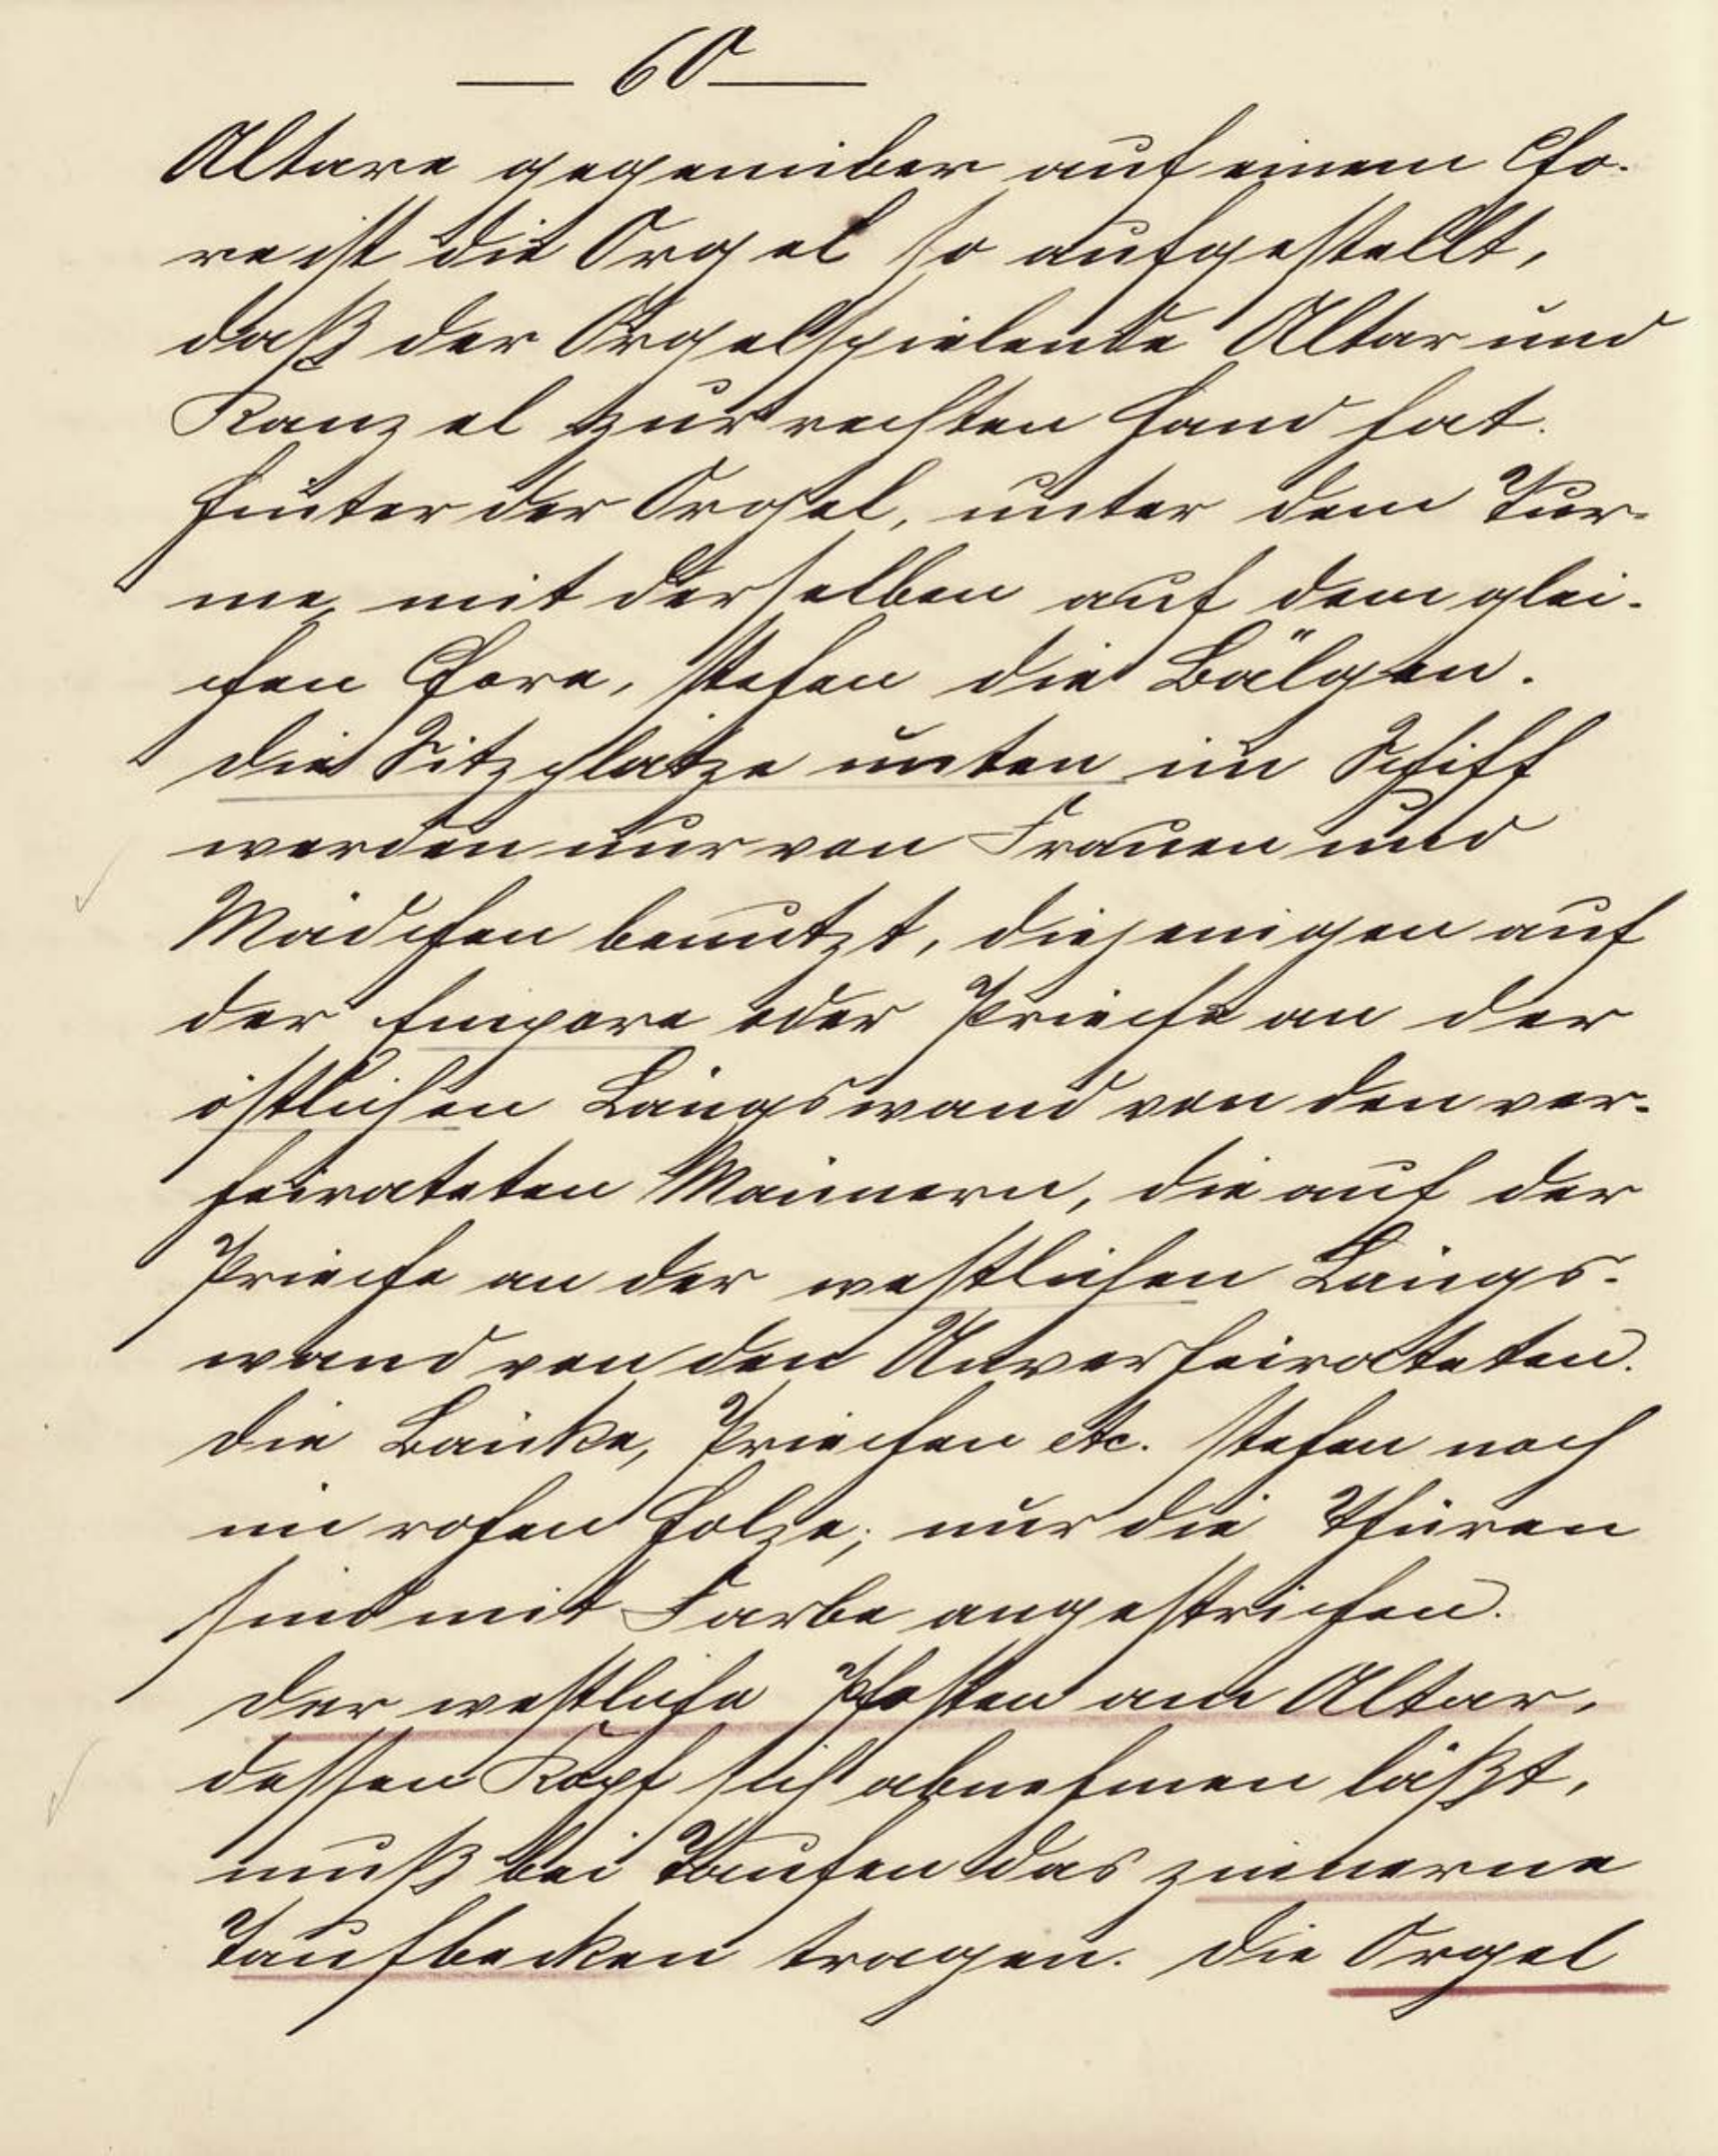 — 60 —
Altare gegenüber auf einem Cho-
re ist die Orgel so aufgestellt,
daß der Orgelspielende Altar und
Kanzel zur rechten Hand hat.
Hinter der Orgel, unter dem Tur-
me, mit derselben auf dem glei-
chen Chore, stehen die Bälgen.
Die Sitzplätze unten im Schiff
werden nur von Frauen und
Mädchen benutzt, diejenigen auf
der Empore oder Prieche an der
östlichen Längswand von den ver-
heirateten Männern, die auf der
Prieche an der westlichen Längs-
wand von den Unverheirateten.
Die Bänke, Priechen etc. stehen noch
im rohen Holze; nur die Thüren
sind mit Farbe angestrichen.
Der westliche Pfosten am Altar,
dessen Kopf sich abnehmen läßt,
muß bei Taufen das zinnerne
Taufbecken tragen. Die Orgel